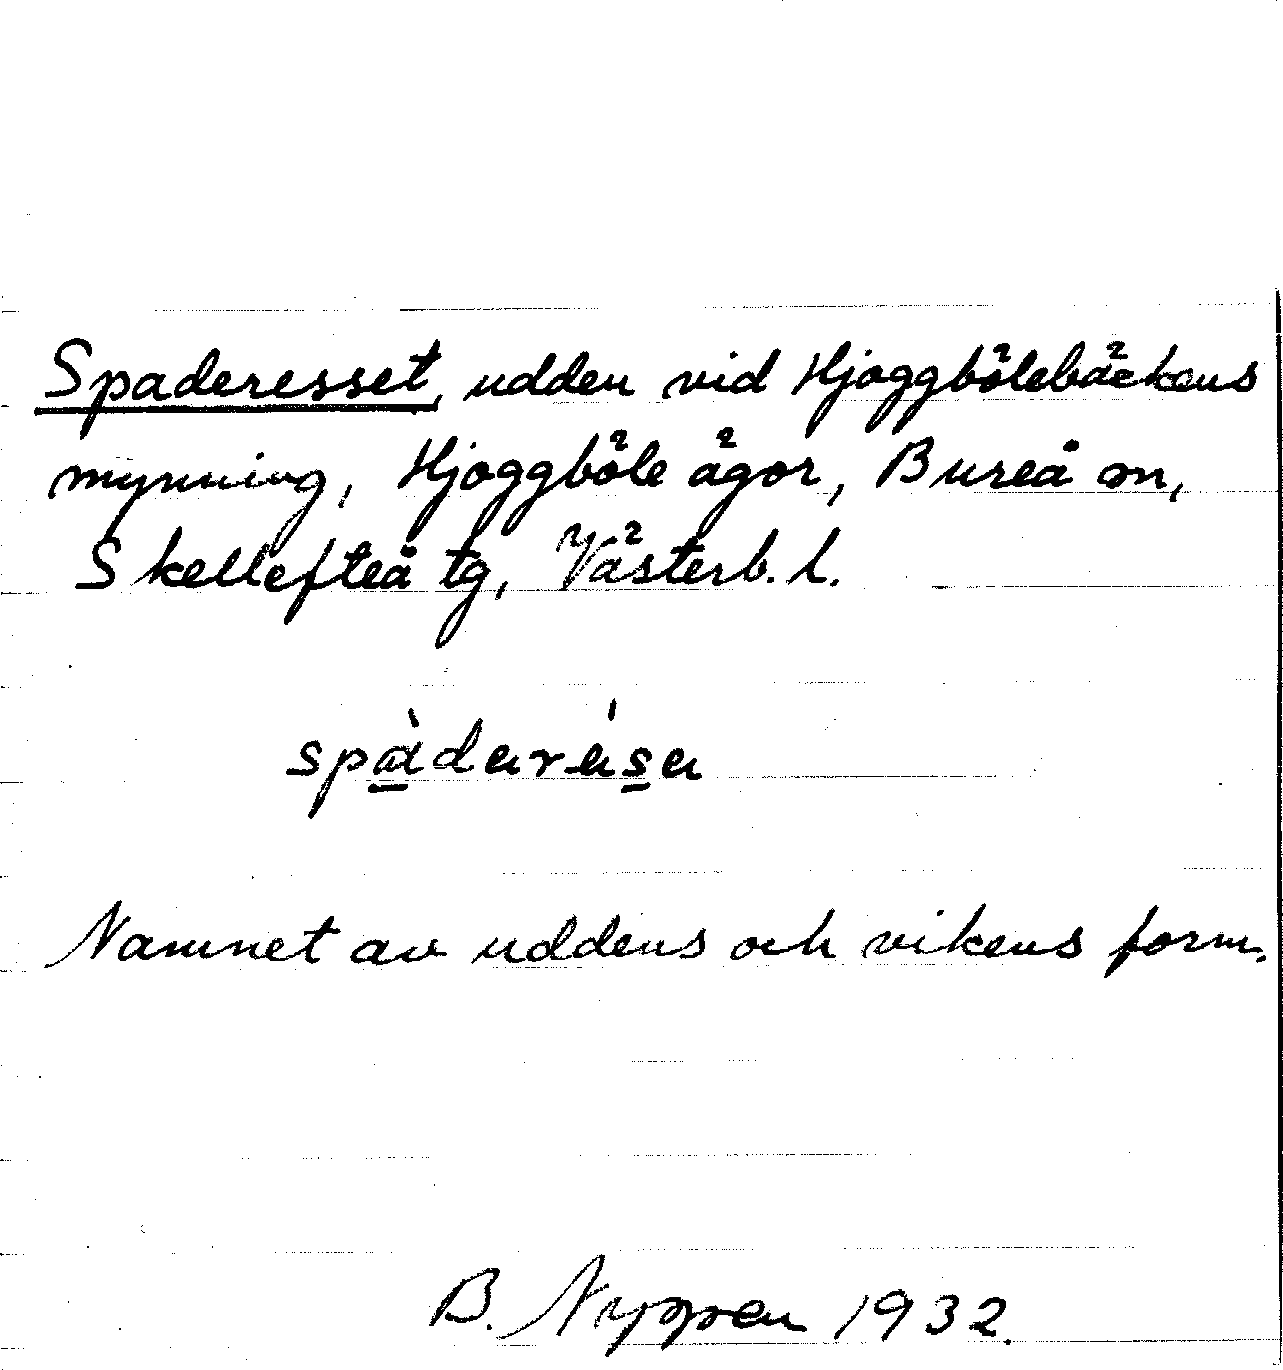 Spaderesset, udden vid Hjoggbölebäckens
mynning, Hjoggböle ägor, Bureå sn,
Skellefteå tg, Västerb. l.
Namnet av uddens och vikens form.
B. Nyppen 1932.